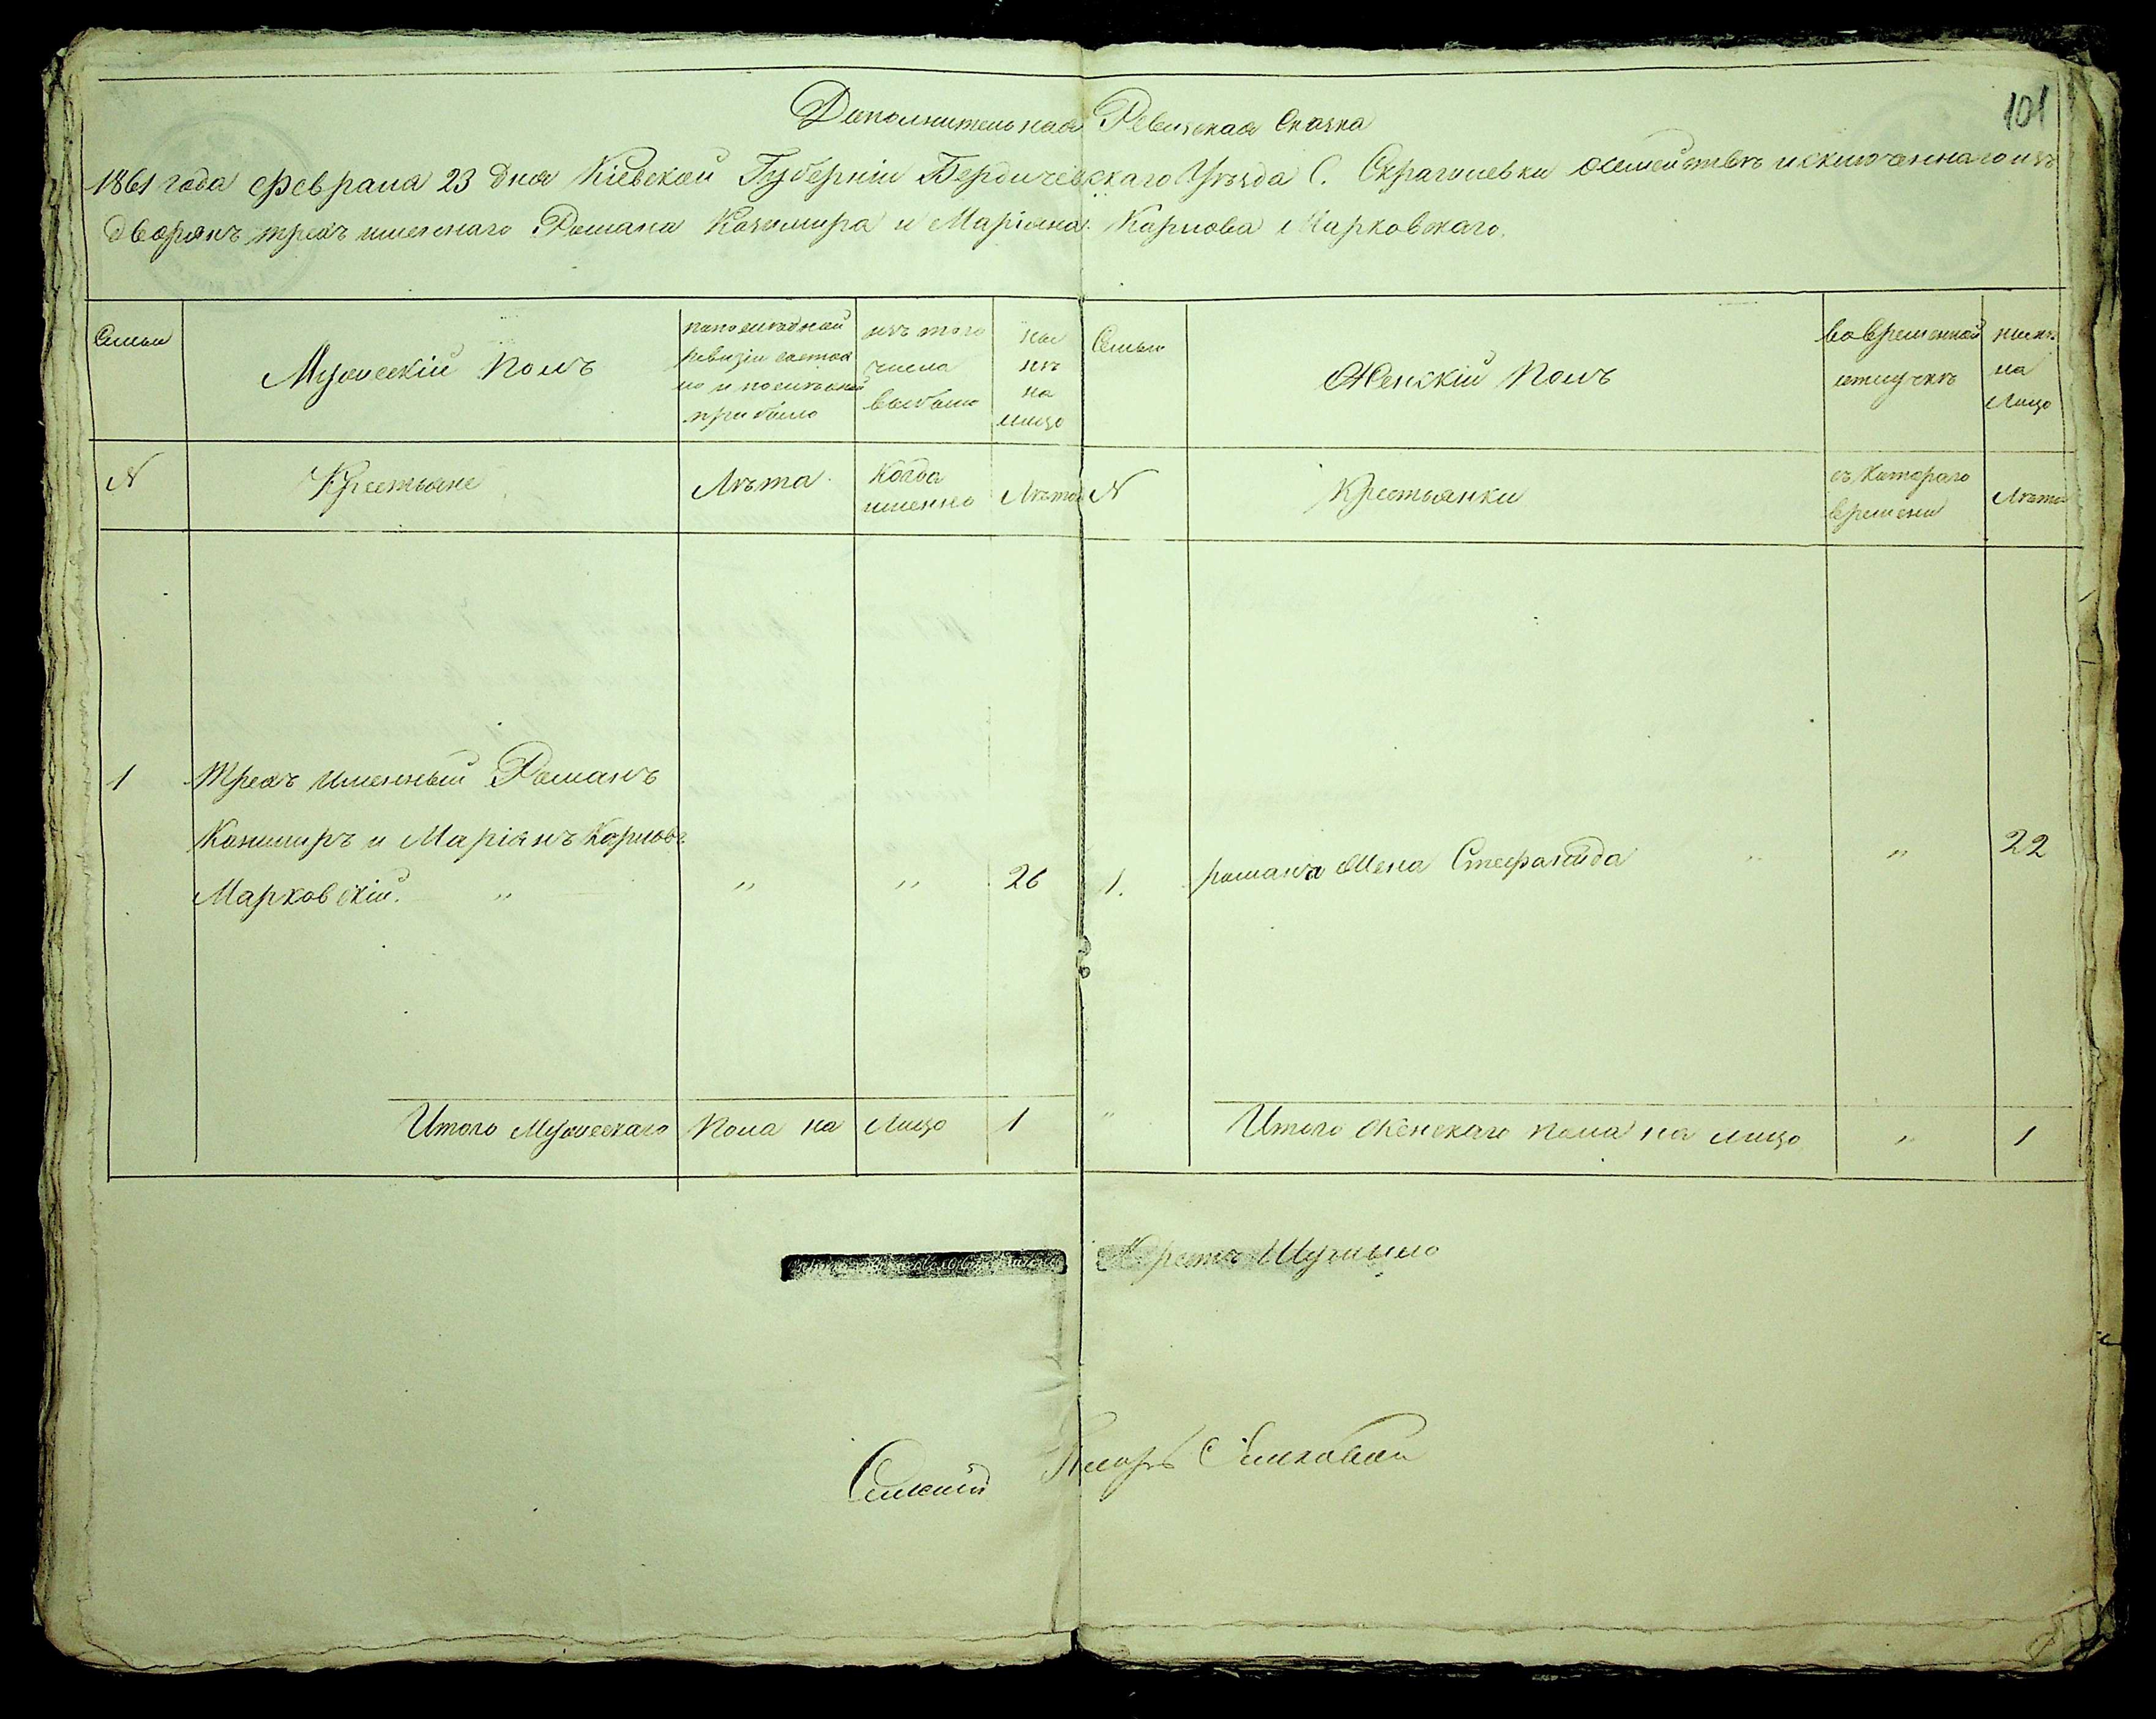 101
Дополнительная Ревизская Сказка
1861 года Февраля 23 дня Кіевской Губерніи Бердичевскаго Уѣзда С. Скраголевки о семействѣ изключеннаго изъ
дворянъ трехъ именнаго Романа Казимира и Маріяна Карлова Марковскаго.
Семьи
Мужескій Полъ
по последней
ревизіи состоя
ло и после оной
прибыло
изъ того
числа
выбыло
ны
нѣ
на
лицо
Семьи
Женскій Полъ
во временной
отлучкѣ
нынѣ
на
Лицо
N
Крестьяне
Лѣта
Когда
именно
Лѣта
N
Крестьянки
съ котораго
времени
Лѣта
1
Трехъ именный Романъ
Казимиръ и Маріянъ Карловъ
Марковскій. " " " 26
1. романа жена Стефанида " " 22
Итого Мужескаго Пола на Лицо 1
" Итого Женскаго пола на лицо " 1
Сельскій Писарь